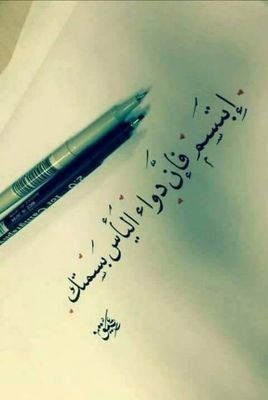 إِبتَسِم فَإن دَّوَاء اليَأَسْ بَسِمَتك